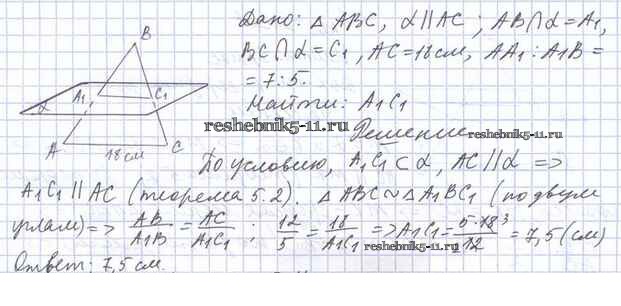 Дано: △ ABC, α ∥ AC; AB∩α = A₁,
BC∩α = C₁, AC = 18 см, AA₁ : A₁B =
= 7 : 5.
Найти: A₁C₁
reshebnik5-11.ru
Решение
reshebnik5-11.ru
B
A₁
C₁
α
A
18 см
C
По условию, A₁C₁ ⊂ α, AC ∥ α =>
A₁C₁ ∥ AC (теорема 5.2). △ ABC ∼ △ A₁BC₁ (по двум
углам) => AB/A₁B = AC/A₁C₁ ; 12/5 = 18/A₁C₁ => A₁C₁ = 5·18³/12 = 7,5 (см)
reshebnik5-11.ru
Ответ: 7,5 см.